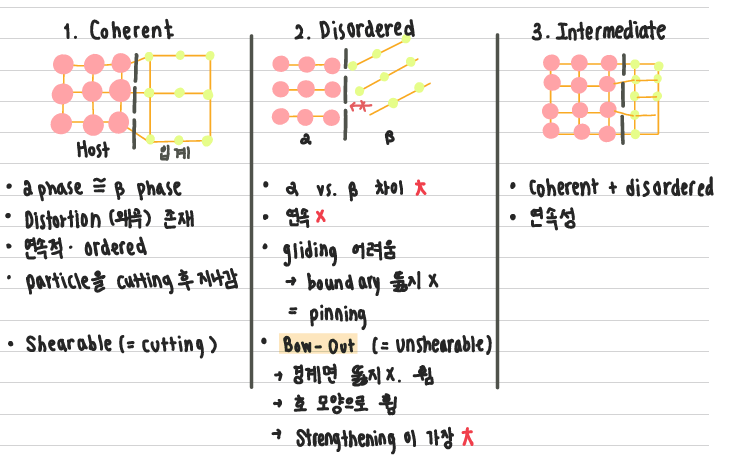 1. Coherent
Host
입계
• α phase ≅ β phase
• Distortion (왜육) 존재
• 연속적 · ordered
• particle을 cutting 후 지나감
• Shearable (= cutting)
2. Disordered
α
β
• α vs. β 차이 大
• 연속 X
• gliding 어려움
→ boundary 뚫지 X
= pinning
• Bow-Out (= unshearable)
→ 경계면 뚫지 X. 휨
→ 호 모양으로 휨
→ Strengthening 이 가장 大
3. Intermediate
• Coherent + disordered
• 연속성